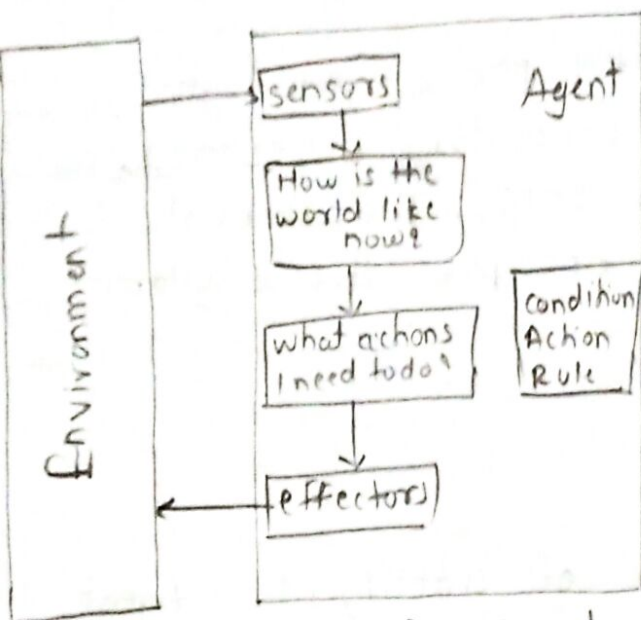 Environment
Agent
sensors
How is the
world like
now?
what actions
I need to do?
condition
Action
Rule
effectors